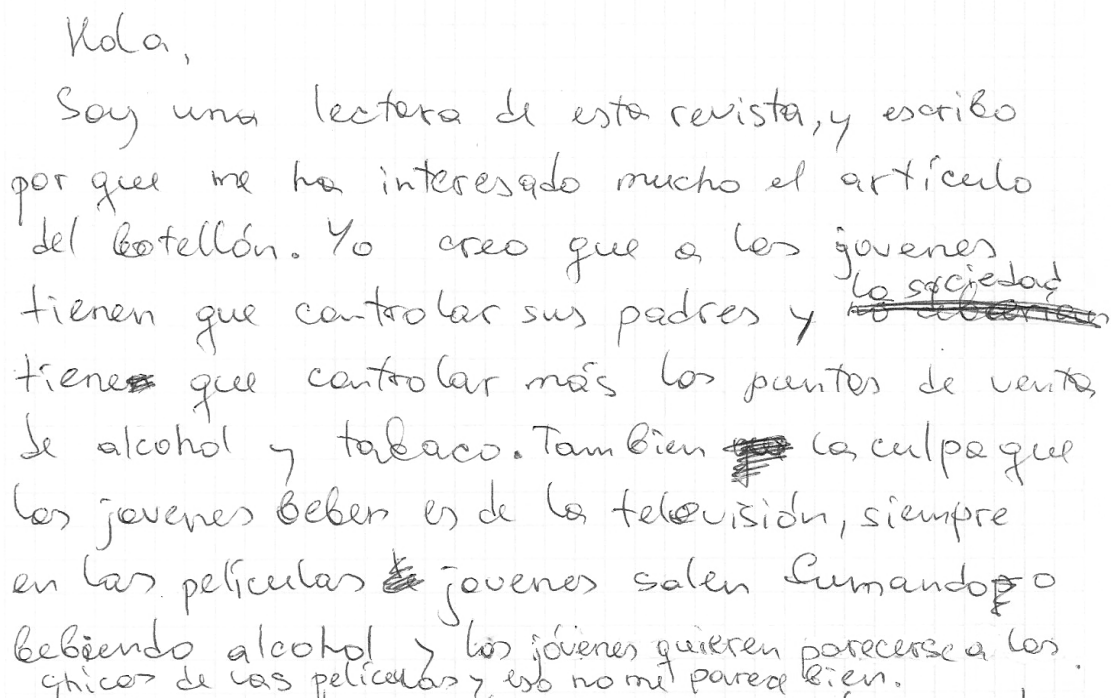 Hola,
Soy una lectora de esta revista, y escribo
por que me ha interesado mucho el artículo
del botellón. Yo creo que a los jovenes
tienen que controlar sus padres y la sociedad
tiene que controlar más los puntos de venta
de alcohol y tabaco. Tambien la culpa que
los jovenes beben es de la televisión, siempre
en las películas jovenes salen fumando o
bebiendo alcohol y los jóvenes quieren parecerse a los
chicos de las películas y eso no me parece bien.